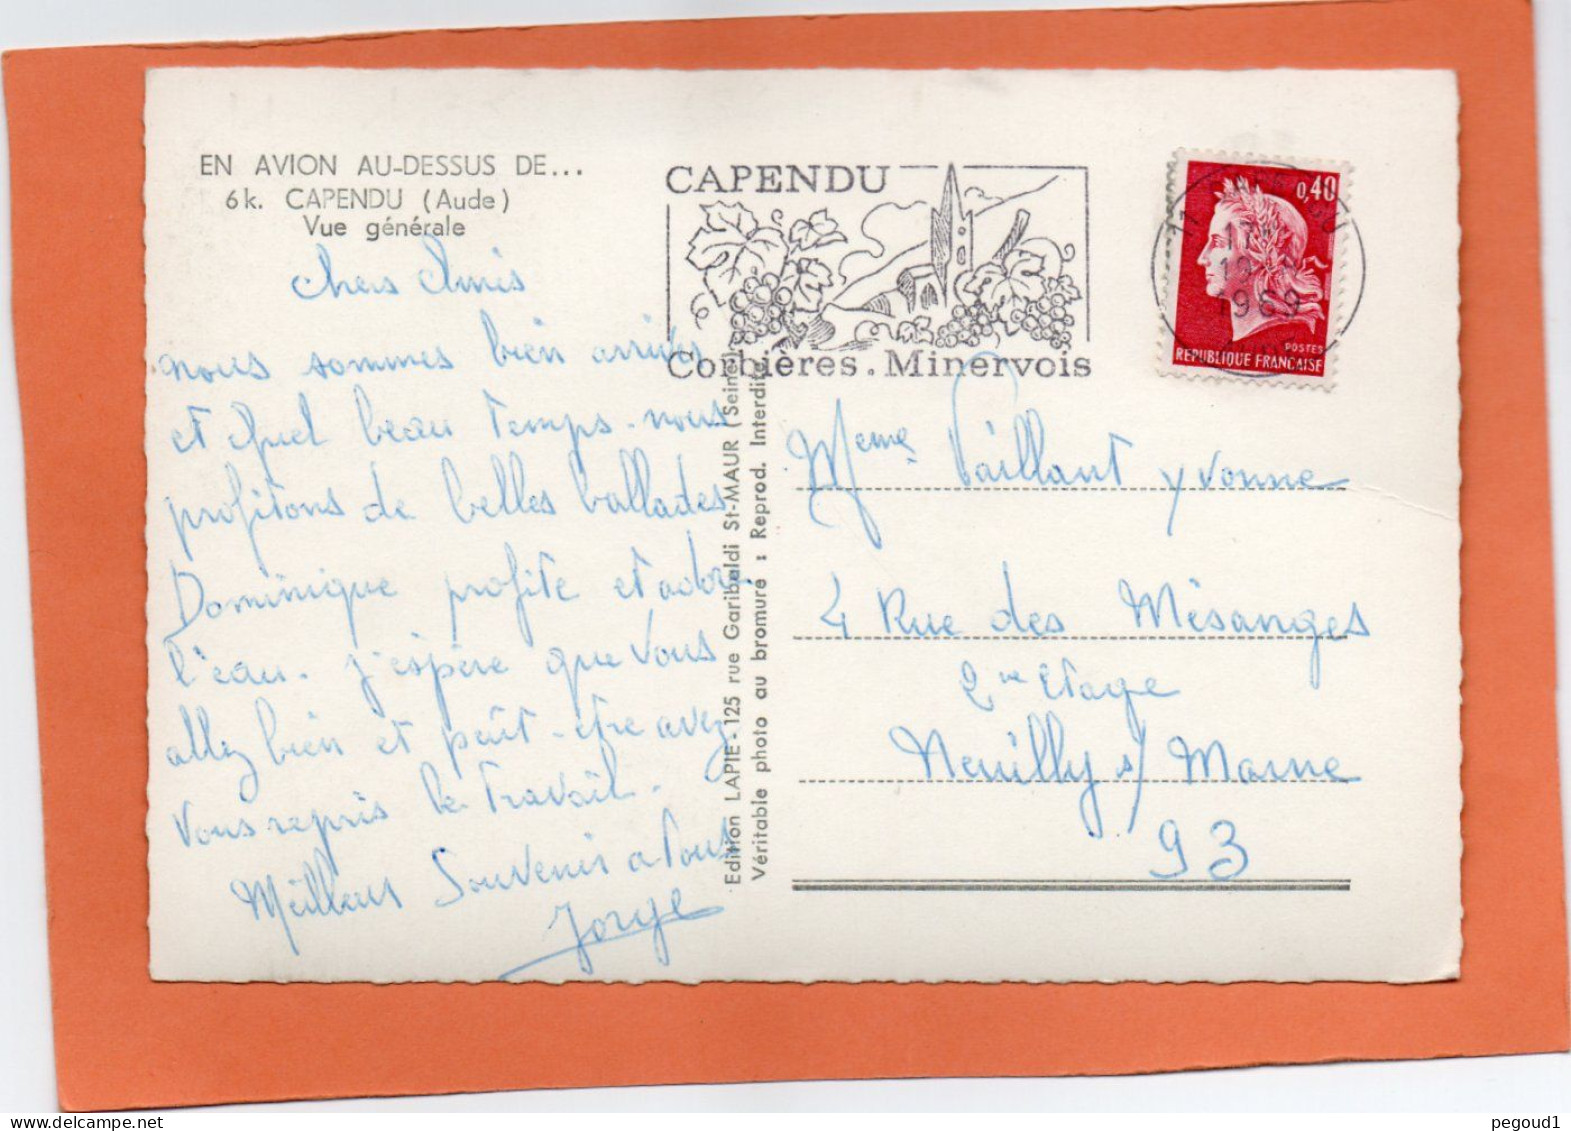 EN AVION AU-DESSUS DE...
6 k. CAPENDU (Aude)
Vue générale
Chers Amis
nous sommes bien arrivés
et quel beau temps. nous
profitons de belles ballades
Dominique profite et adore
l'eau. J'espère que vous
allez bien et peut-être avez
vous repris le travail.
Meilleurs Souvenirs a tous
Jorge
Edition LAPIE - 125 rue Garibaldi St-MAUR (Seine)
Véritable photo au bromure : Reprod. Interdite.
CAPENDU
Corbières. Minervois
11 CAPENDU
17H
19
1969
0,40
POSTES
REPUBLIQUE FRANÇAISE
Meme Vaillant Yvonne
4 Rue des Mésanges
2me Etage
Neuilly s/ Marne
93
pegoud1